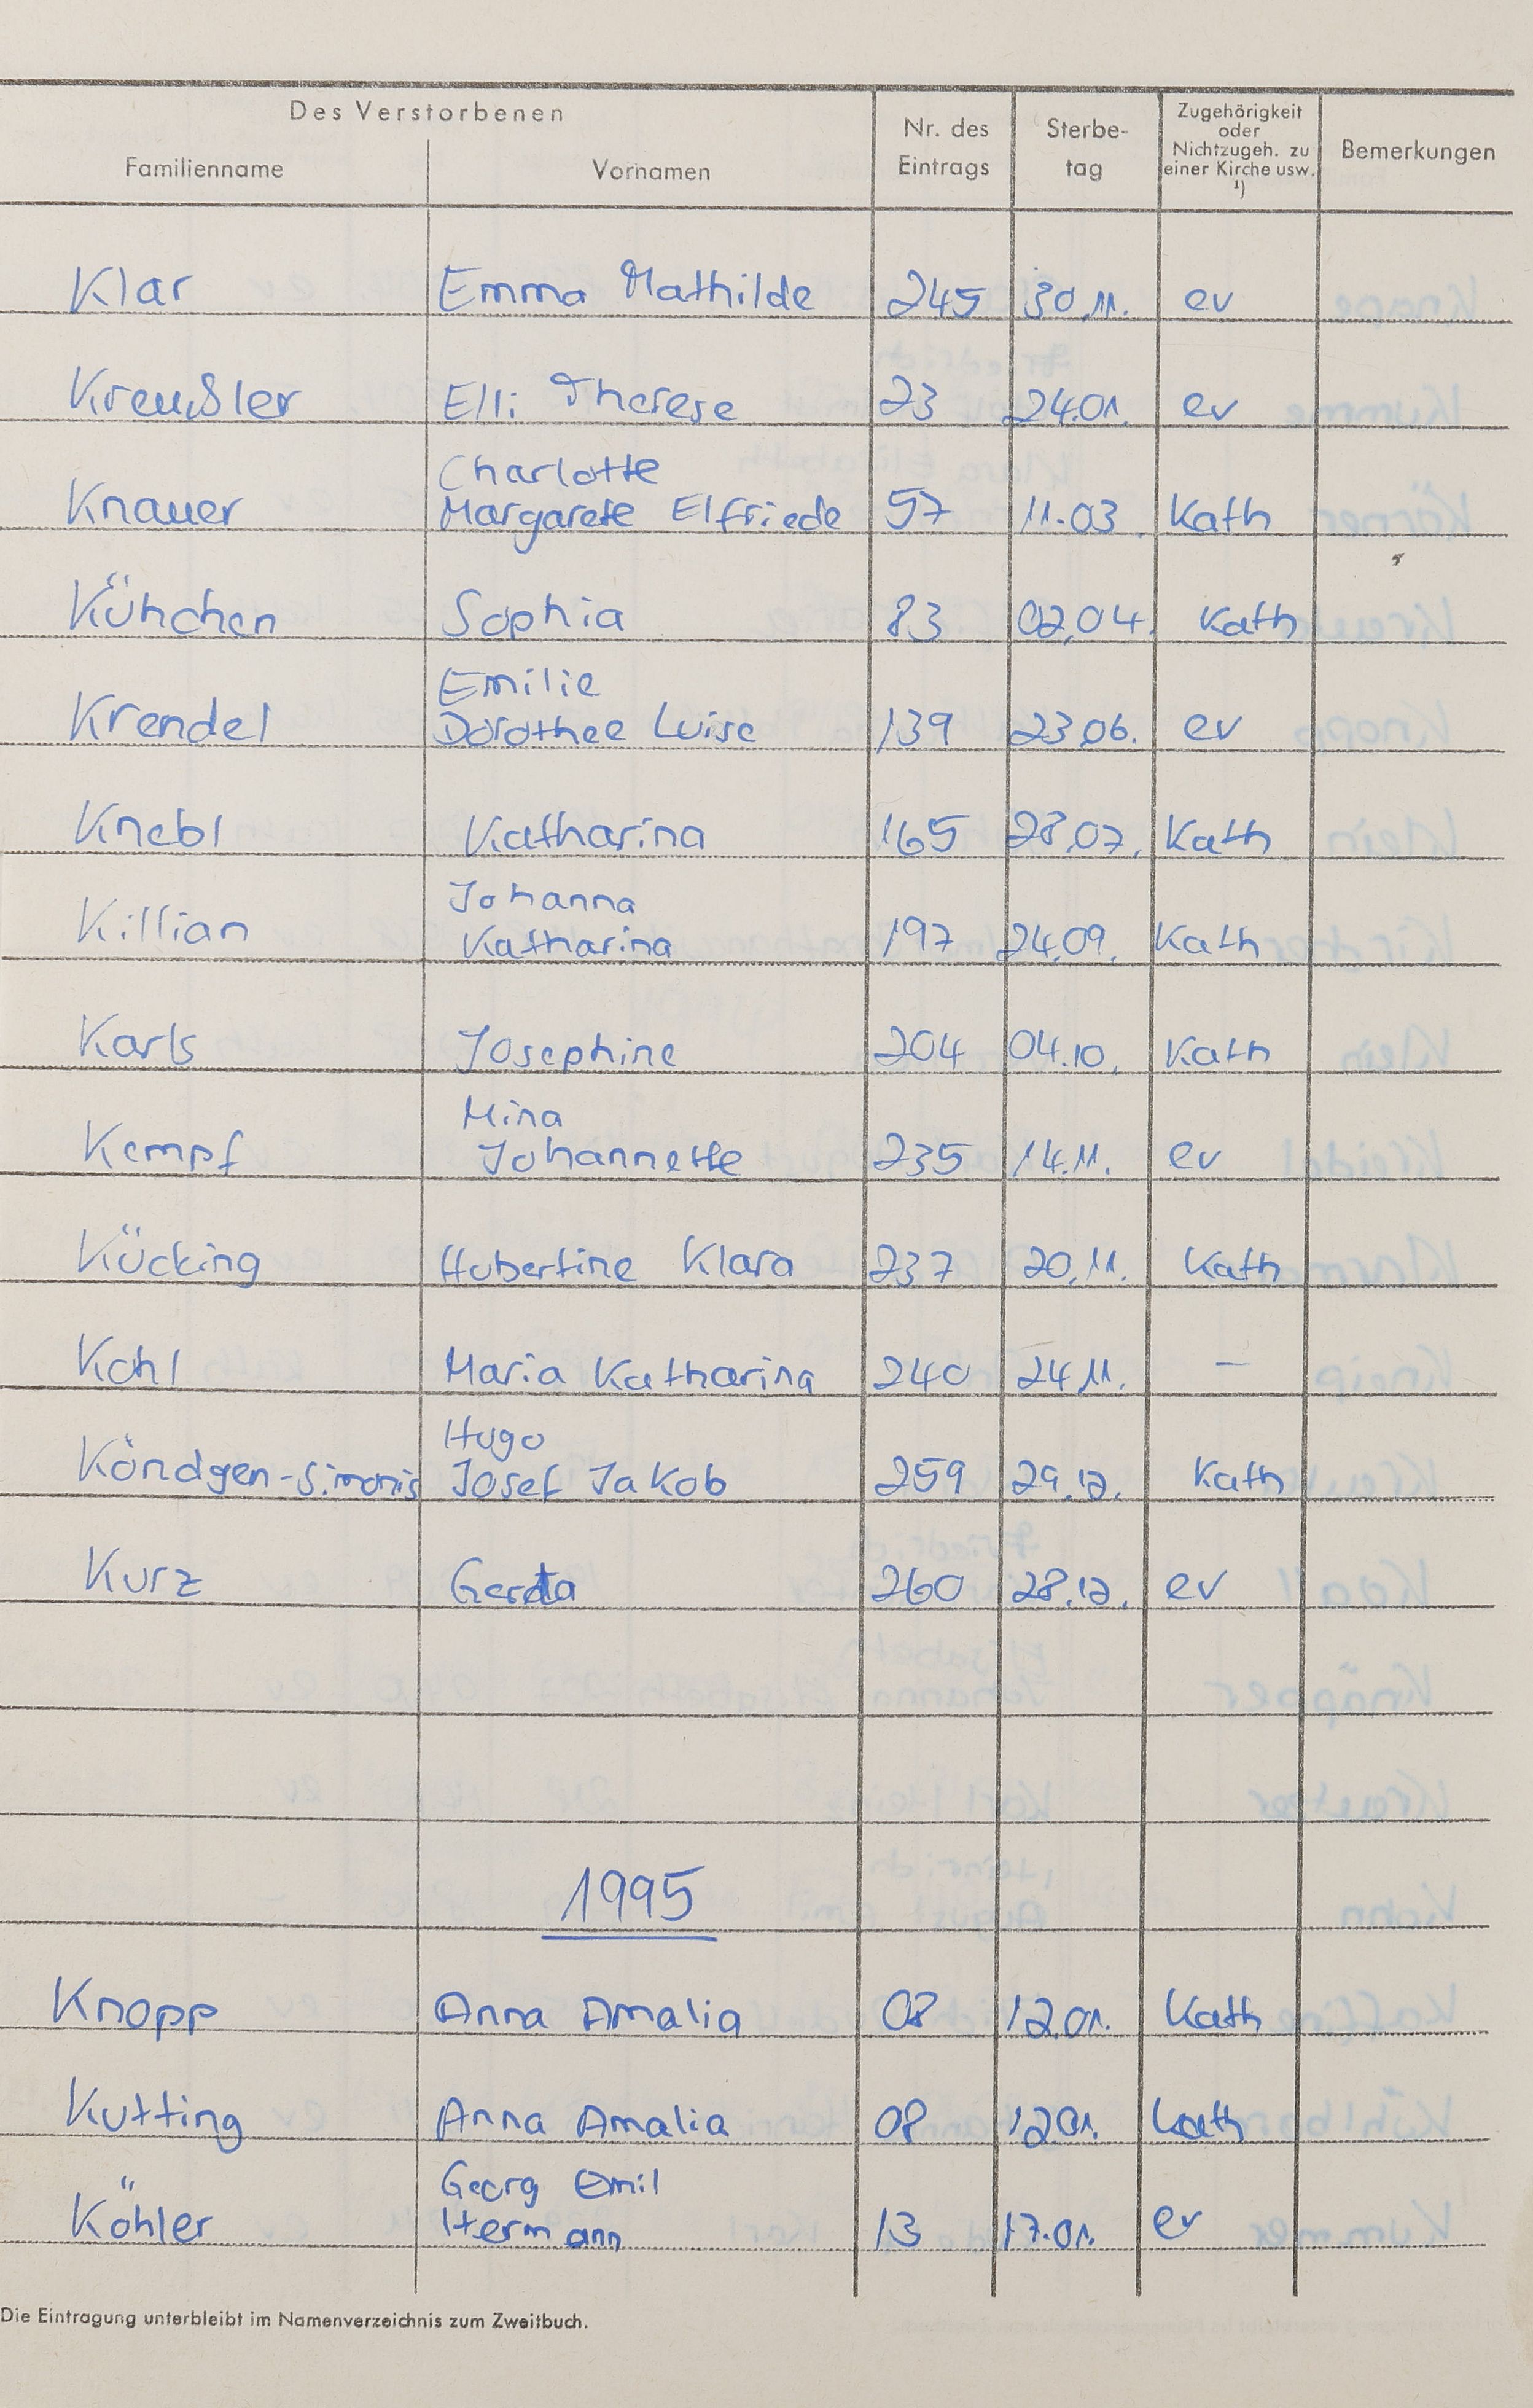 Des Verstorbenen
Familienname Vornamen Nr. des Eintrags Sterbe-tag Zugehörigkeit oder Nichtzugeh. zu einer Kirche usw. 1) Bemerkungen
Klar Emma Mathilde 245 30.11. ev
Kreußler Elli Therese 23 24.01. ev
Charlotte
Knauer Margarete Elfriede 57 11.03. Kath
Kühchen Sophia 83 02.04. Kath
Emilie
Krendel Dorothee Luise 139 23.06. ev
Knebl Katharina 165 28.07. Kath
Johanna
Killian Katharina 197 24.09. Kath
Karls Josephine 204 04.10. Kath
Mina
Kempf Johannette 235 14.11. ev
Kücking Hubertine Klara 237 20.11. Kath
Kohl Maria Katharina 240 24.11. —
Hugo
Köndgen-Simonis Josef Jakob 259 29.12. Kath
Kurz Gerda 260 28.12. ev
1995
Knopp Anna Amalia 08 12.01. Kath
Kutting Anna Amalia 08 12.01. Kath
Georg Emil
Köhler Hermann 13 17.01. ev
Die Eintragung unterbleibt im Namenverzeichnis zum Zweitbuch.